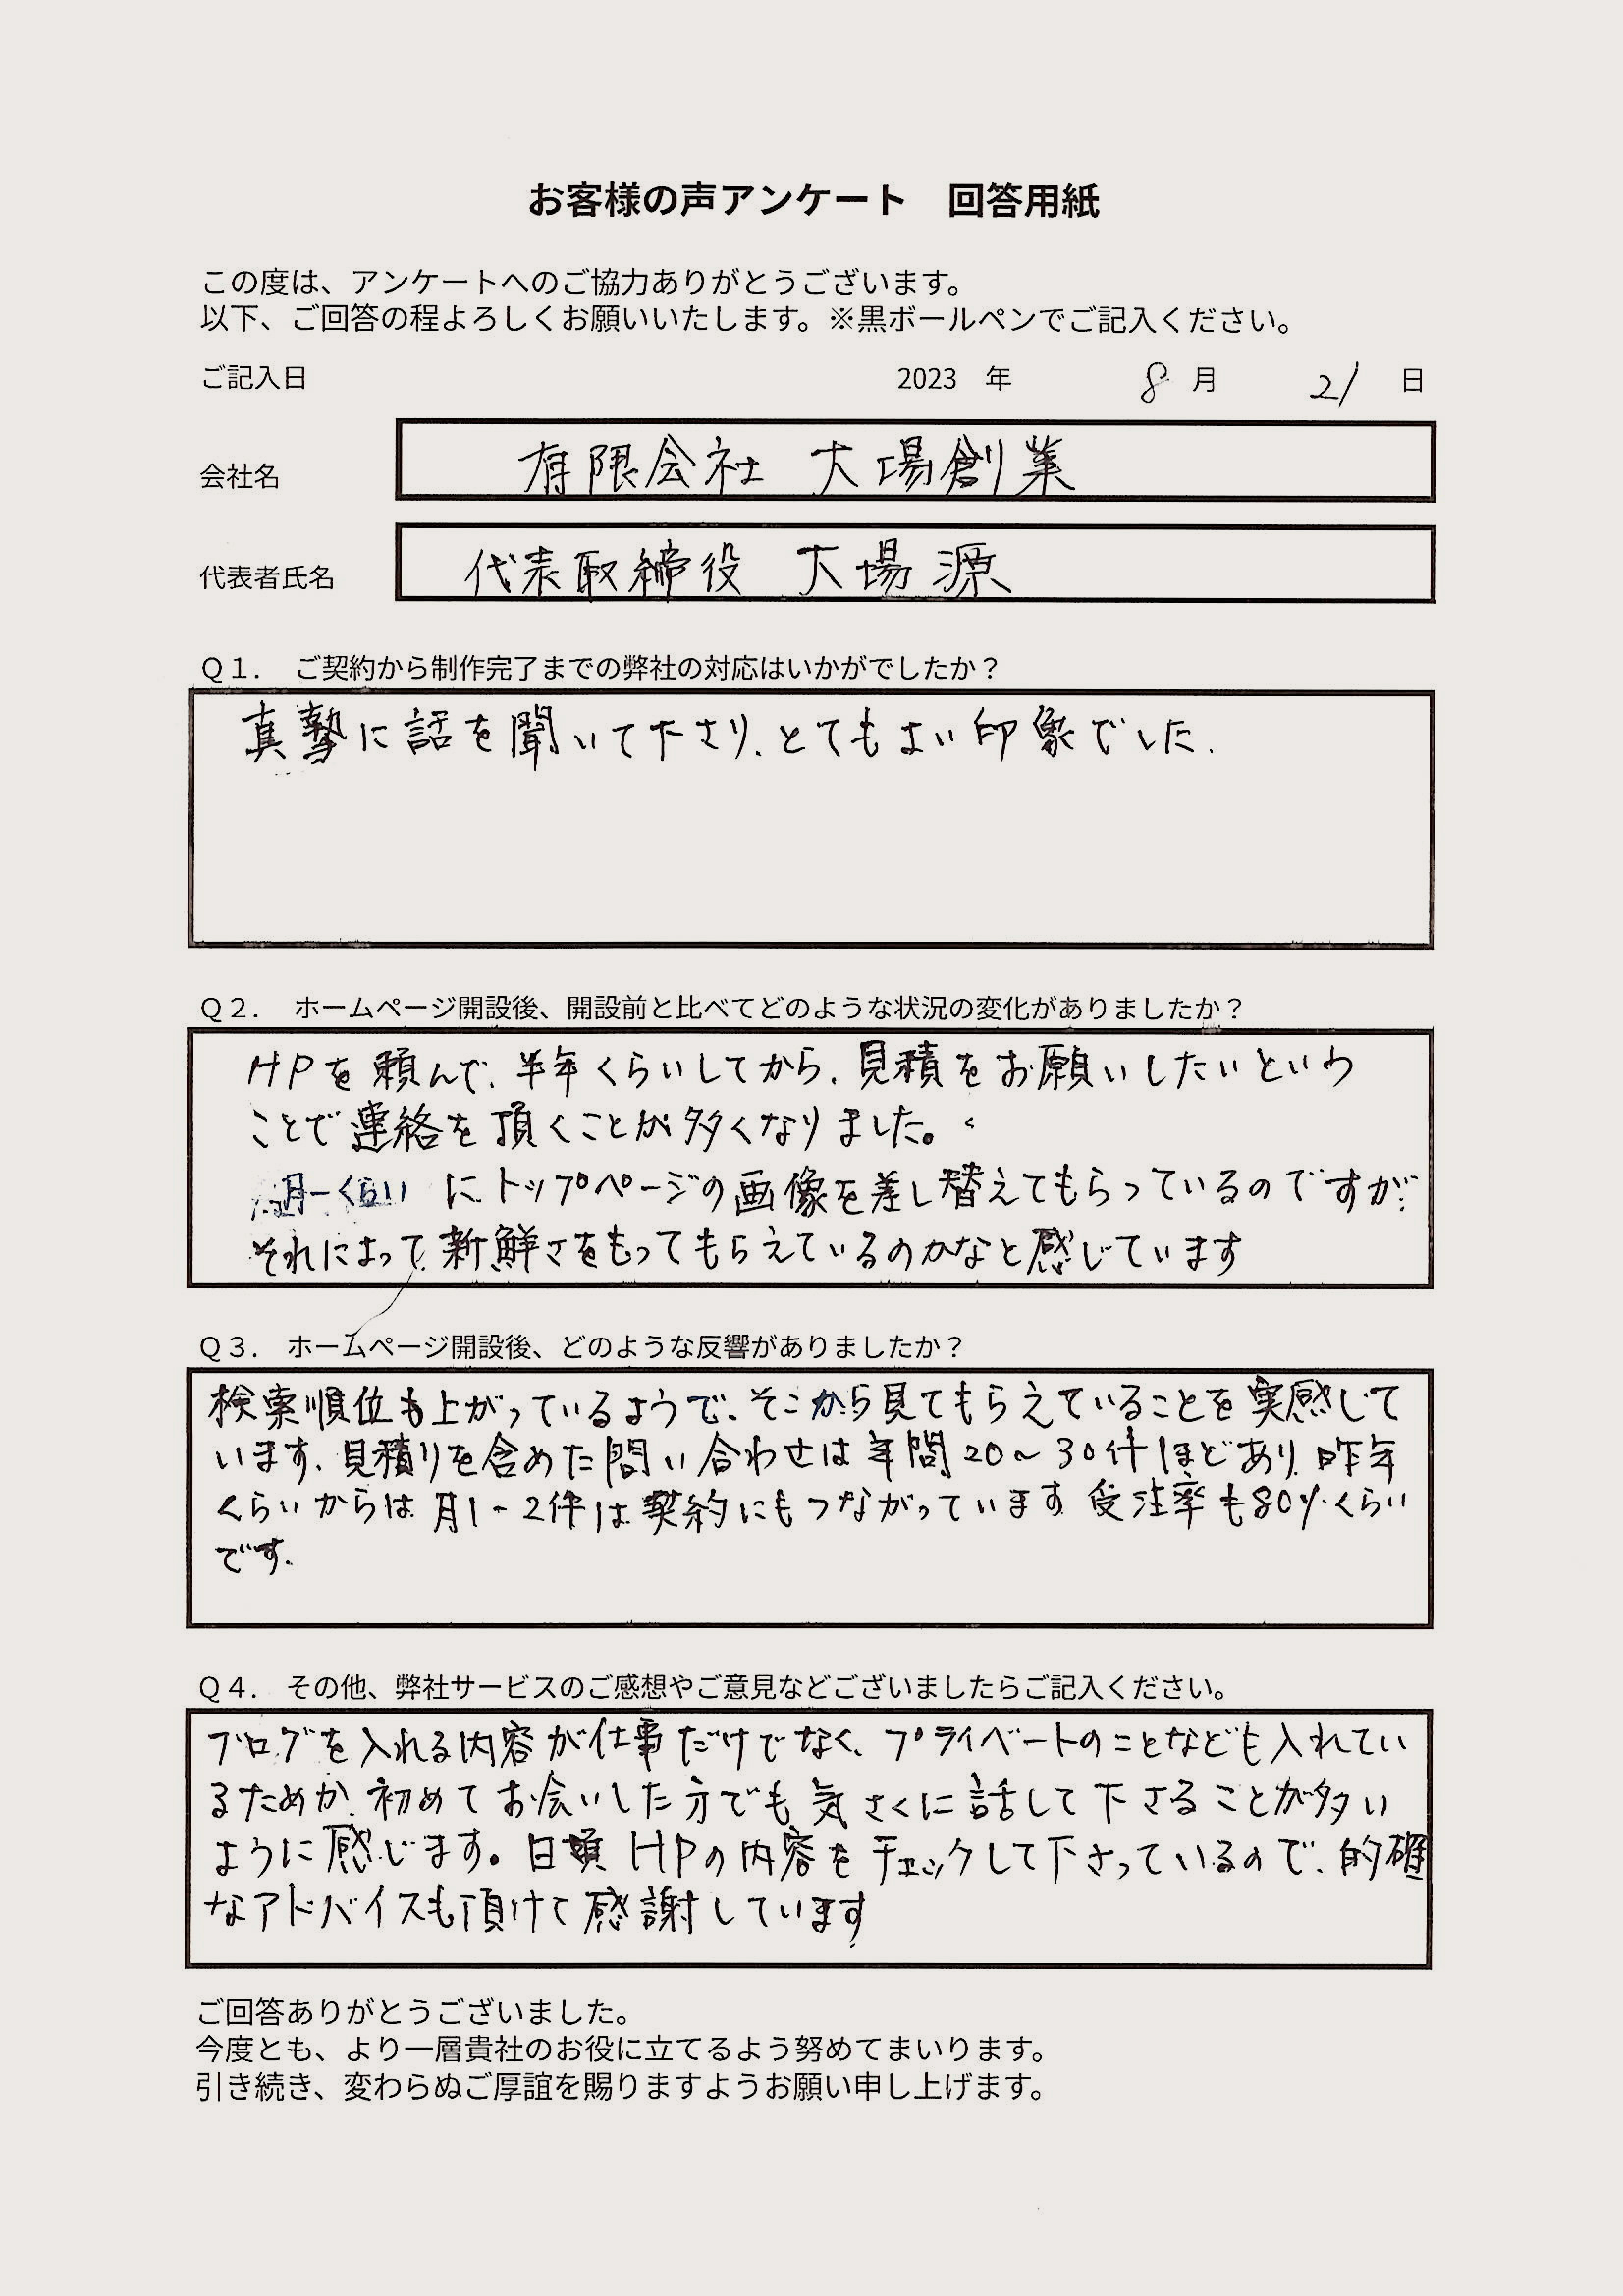 お客様の声アンケート　回答用紙
この度は、アンケートへのご協力ありがとうございます。
以下、ご回答の程よろしくお願いいたします。※黒ボールペンでご記入ください。
ご記入日　2023　年　8　月　21　日
会社名　有限会社　大場創業
代表者氏名　代表取締役　大場源
Q１．　ご契約から制作完了までの弊社の対応はいかがでしたか？
真摯に話を聞いて下さり、とてもよい印象でした．
Q２．　ホームページ開設後、開設前と比べてどのような状況の変化がありましたか？
HPを頼んで、半年くらいしてから、見積をお願いしたいという
ことで連絡を頂くことが多くなりました。
月一くらい にトップページの画像を差し替えてもらっているのですが、
それによって、新鮮さをもってもらえているのかなと感じています
Q３．　ホームページ開設後、どのような反響がありましたか？
検索順位も上がっているようで、そこから見てもらえていることを実感じて
います、見積りを含めた問い合わせは年間20～30件ほどあり、昨年
くらいからは月1-2件は契約にもつながっています 受注率も80%くらい
です．
Q４．　その他、弊社サービスのご感想やご意見などございましたらご記入ください。
ブログを入れる内容が仕事だけでなく、プライベートのことなども入れてい
るためか、初めてお会いした方でも気さくに話して下さることが多い
ように感じます。日頃HPの内容をチェックして下さっているので、的確
なアドバイスも頂けて感謝しています
ご回答ありがとうございました。
今度とも、より一層貴社のお役に立てるよう努めてまいります。
引き続き、変わらぬご厚誼を賜りますようお願い申し上げます。